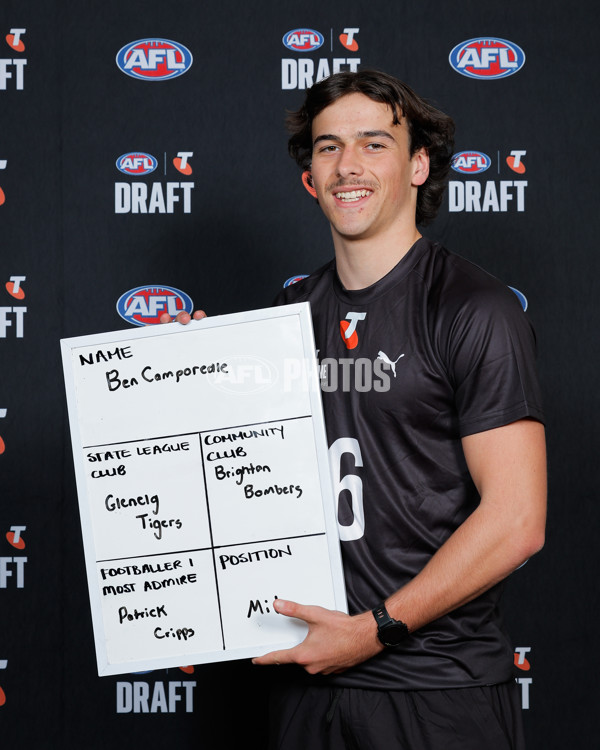 AFL
T
DRAFT
AFL
AFL
T
DRAFT
AFL
AFL
T
DRAFT
AFL
T
DRAFT
T
AFL
T
NAME
Ben Camporeale
AFL PHOTOS
STATE LEAGUE
CLUB
Glenelg
Tigers
COMMUNITY
CLUB
Brighton
Bombers
FOOTBALLER I
MOST ADMIRE
Patrick
Cripps
POSITION
6
T
FT
T
DRAFT